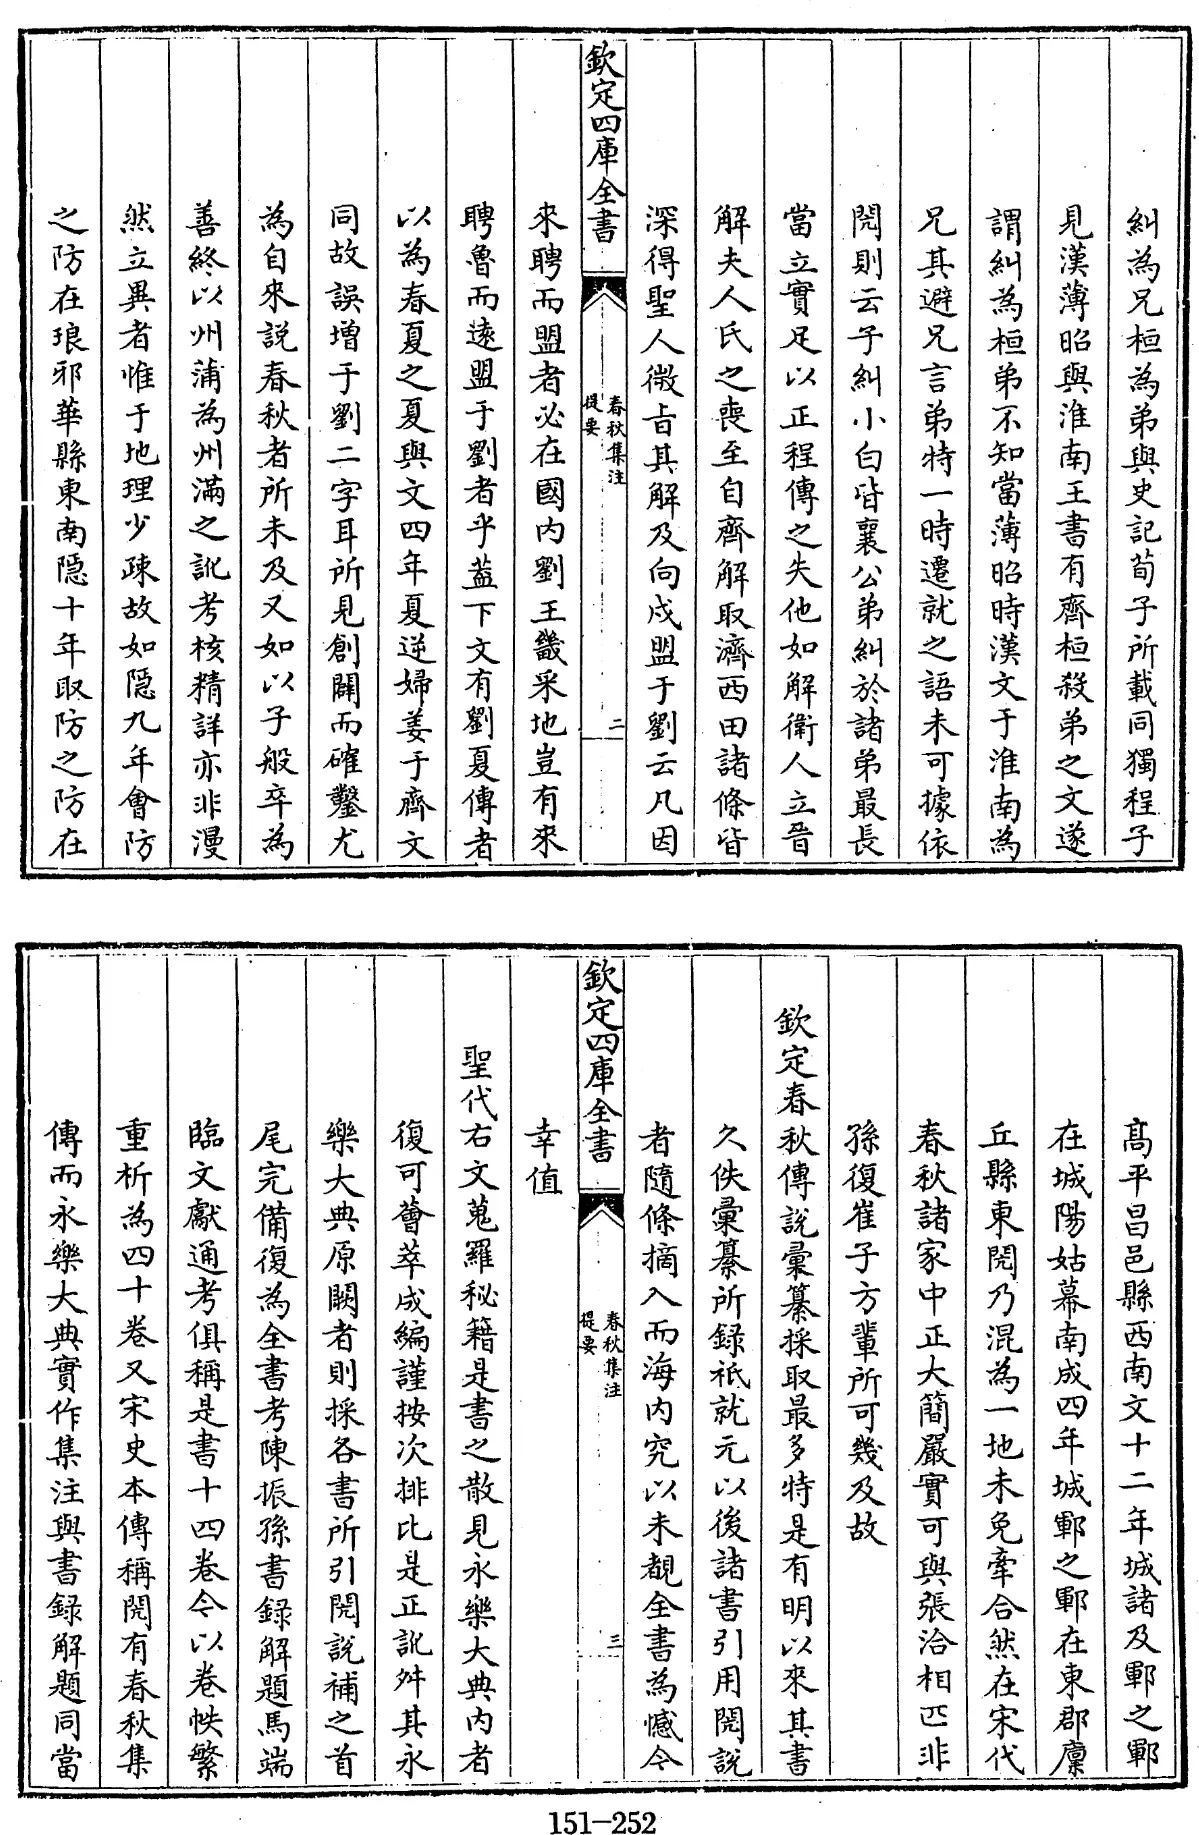 糾為兄桓為弟與史記荀子所載同獨程子
見漢薄昭與淮南王書有齊桓殺弟之文遂
謂糾為桓弟不知當薄昭時漢文于淮南為
兄其避兄言弟特一時遷就之語未可據依
閲則云子糾小白皆襄公弟糾於諸弟最長
當立實足以正程傳之失他如解衛人立晉
解夫人氏之喪至自齊解取濟西田諸條皆
深得聖人微旨其解及向戍盟于劉云凡因
欽定四庫全書
春秋集注
提要
二
來聘而盟者必在國内劉王畿采地豈有來
聘魯而遠盟于劉者乎葢下文有劉夏傳者
以為春夏之夏與文四年夏逆婦姜于齊文
同故誤增于劉二字耳所見創闢而確鑿尤
為自來説春秋者所未及又如以子般卒為
善終以州蒲為州滿之訛考核精詳亦非漫
然立異者惟于地理少疎故如隱九年會防
之防在琅邪華縣東南隱十年取防之防在
高平昌邑縣西南文十二年城諸及鄆之鄆
在城陽姑幕南成四年城鄆之鄆在東郡廩
丘縣東閲乃混為一地未免牽合然在宋代
春秋諸家中正大簡嚴實可與張洽相匹非
孫復崔子方輩所可幾及故
欽定春秋傳説彚纂採取最多特是有明以來其書
久佚彚纂所録祇就元以後諸書引用閲説
者隨條摘入而海内究以未覩全書為憾今
欽定四庫全書
春秋集注
提要
三
幸值
聖代右文蒐羅秘籍是書之散見永樂大典内者
復可薈萃成編謹按次排比是正訛舛其永
樂大典原闕者則採各書所引閲説補之首
尾完備復為全書考陳振孫書録解題馬端
臨文獻通考俱稱是書十四卷今以卷帙繁
重析為四十卷又宋史本傳稱閲有春秋集
傳而永樂大典實作集注與書録解題同當
151-252